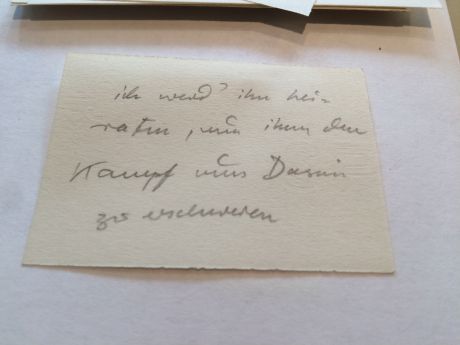 ich werd' ihn hei-
raten, um ihm den
Kampf ums Dasein
zu erschweren